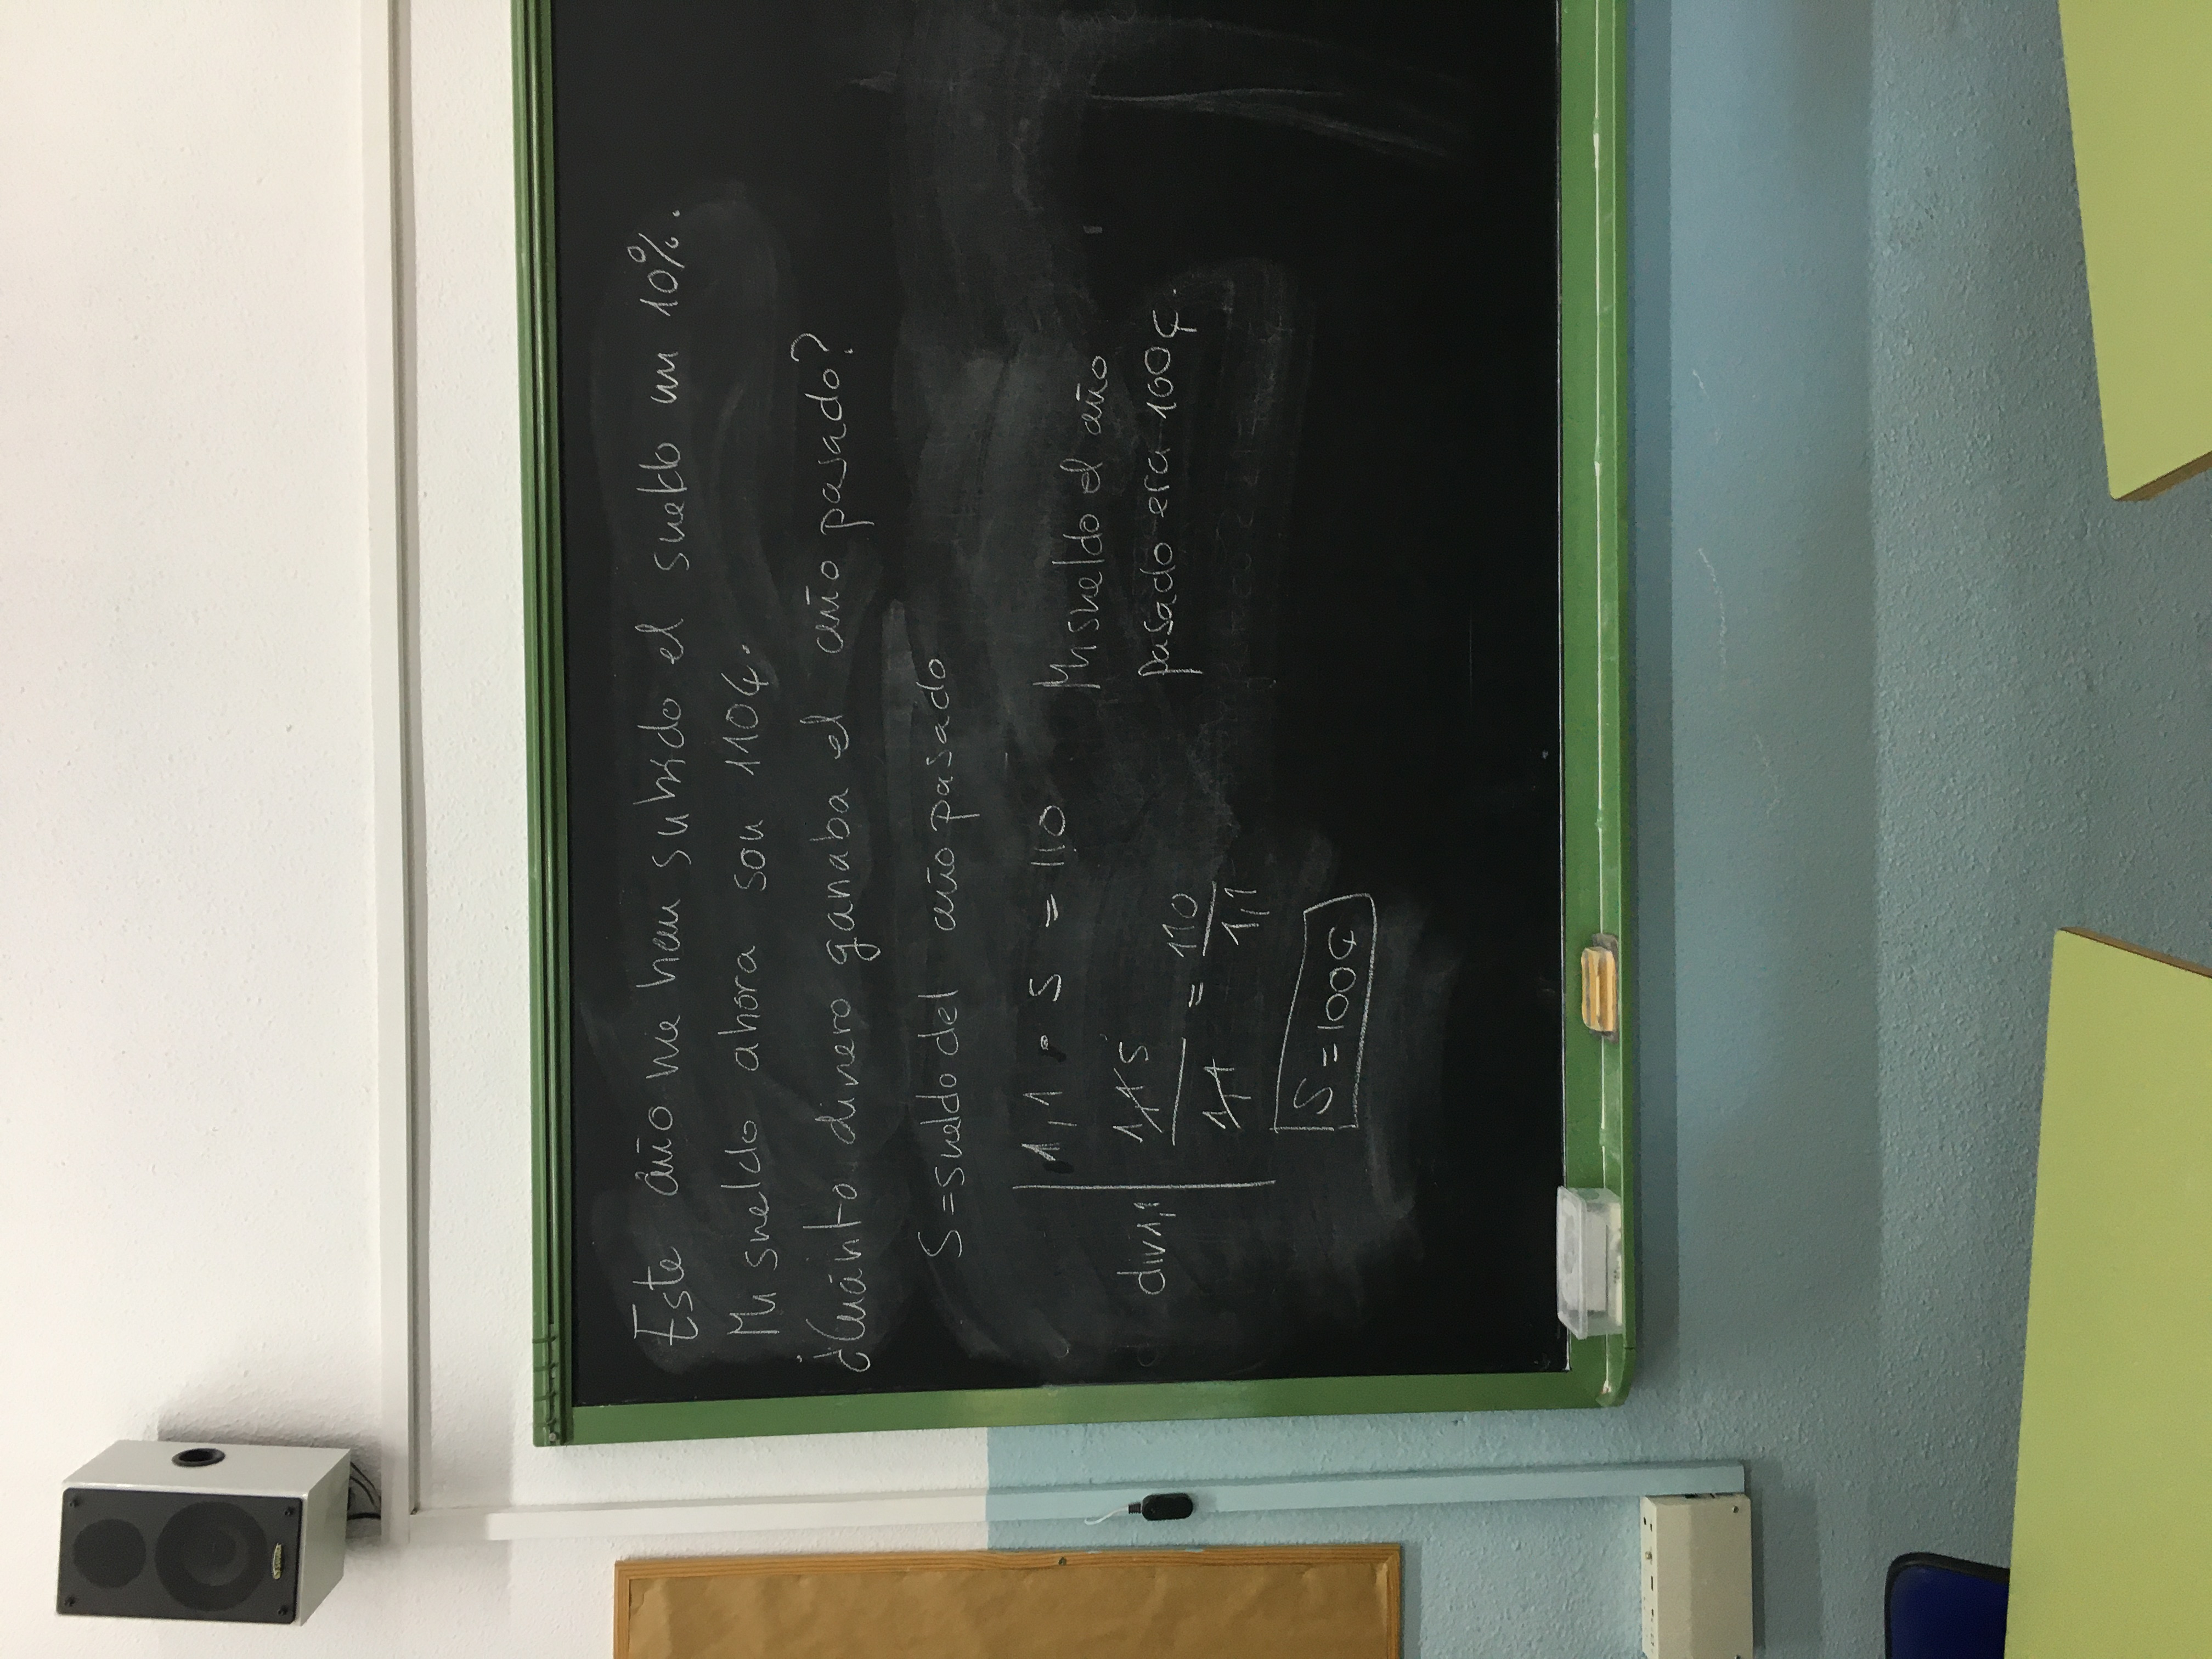 Este año me han subido el sueldo un 10%.
Mi sueldo ahora son 110€.
¿Cuánto dinero ganaba el año pasado?
S = sueldo del año pasado
1,1 · S = 110
div 1,1
1,1 S / 1,1 = 110 / 1,1
S = 100€
Mi sueldo el año
pasado era 100€.